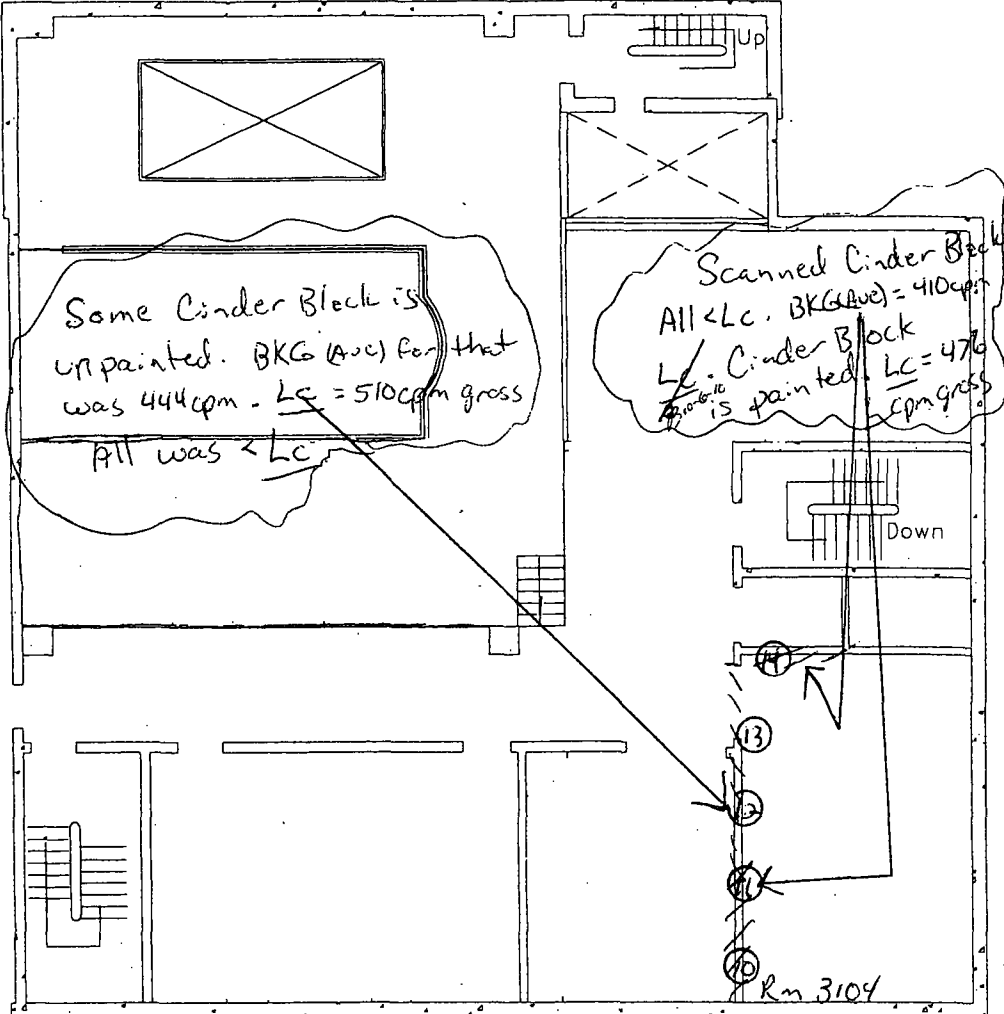 Up
Some Cinder Block is
unpainted. BKG (AVG) for that
was 444cpm. Lc = 510cpm gross
All was < Lc
Scanned Cinder Block
All < Lc. BKG(AVG) = 410cpm
Lc. Cinder Block
is painted. Lc = 476
cpm gross
Down
14
13
12
11
10
Rm 3104